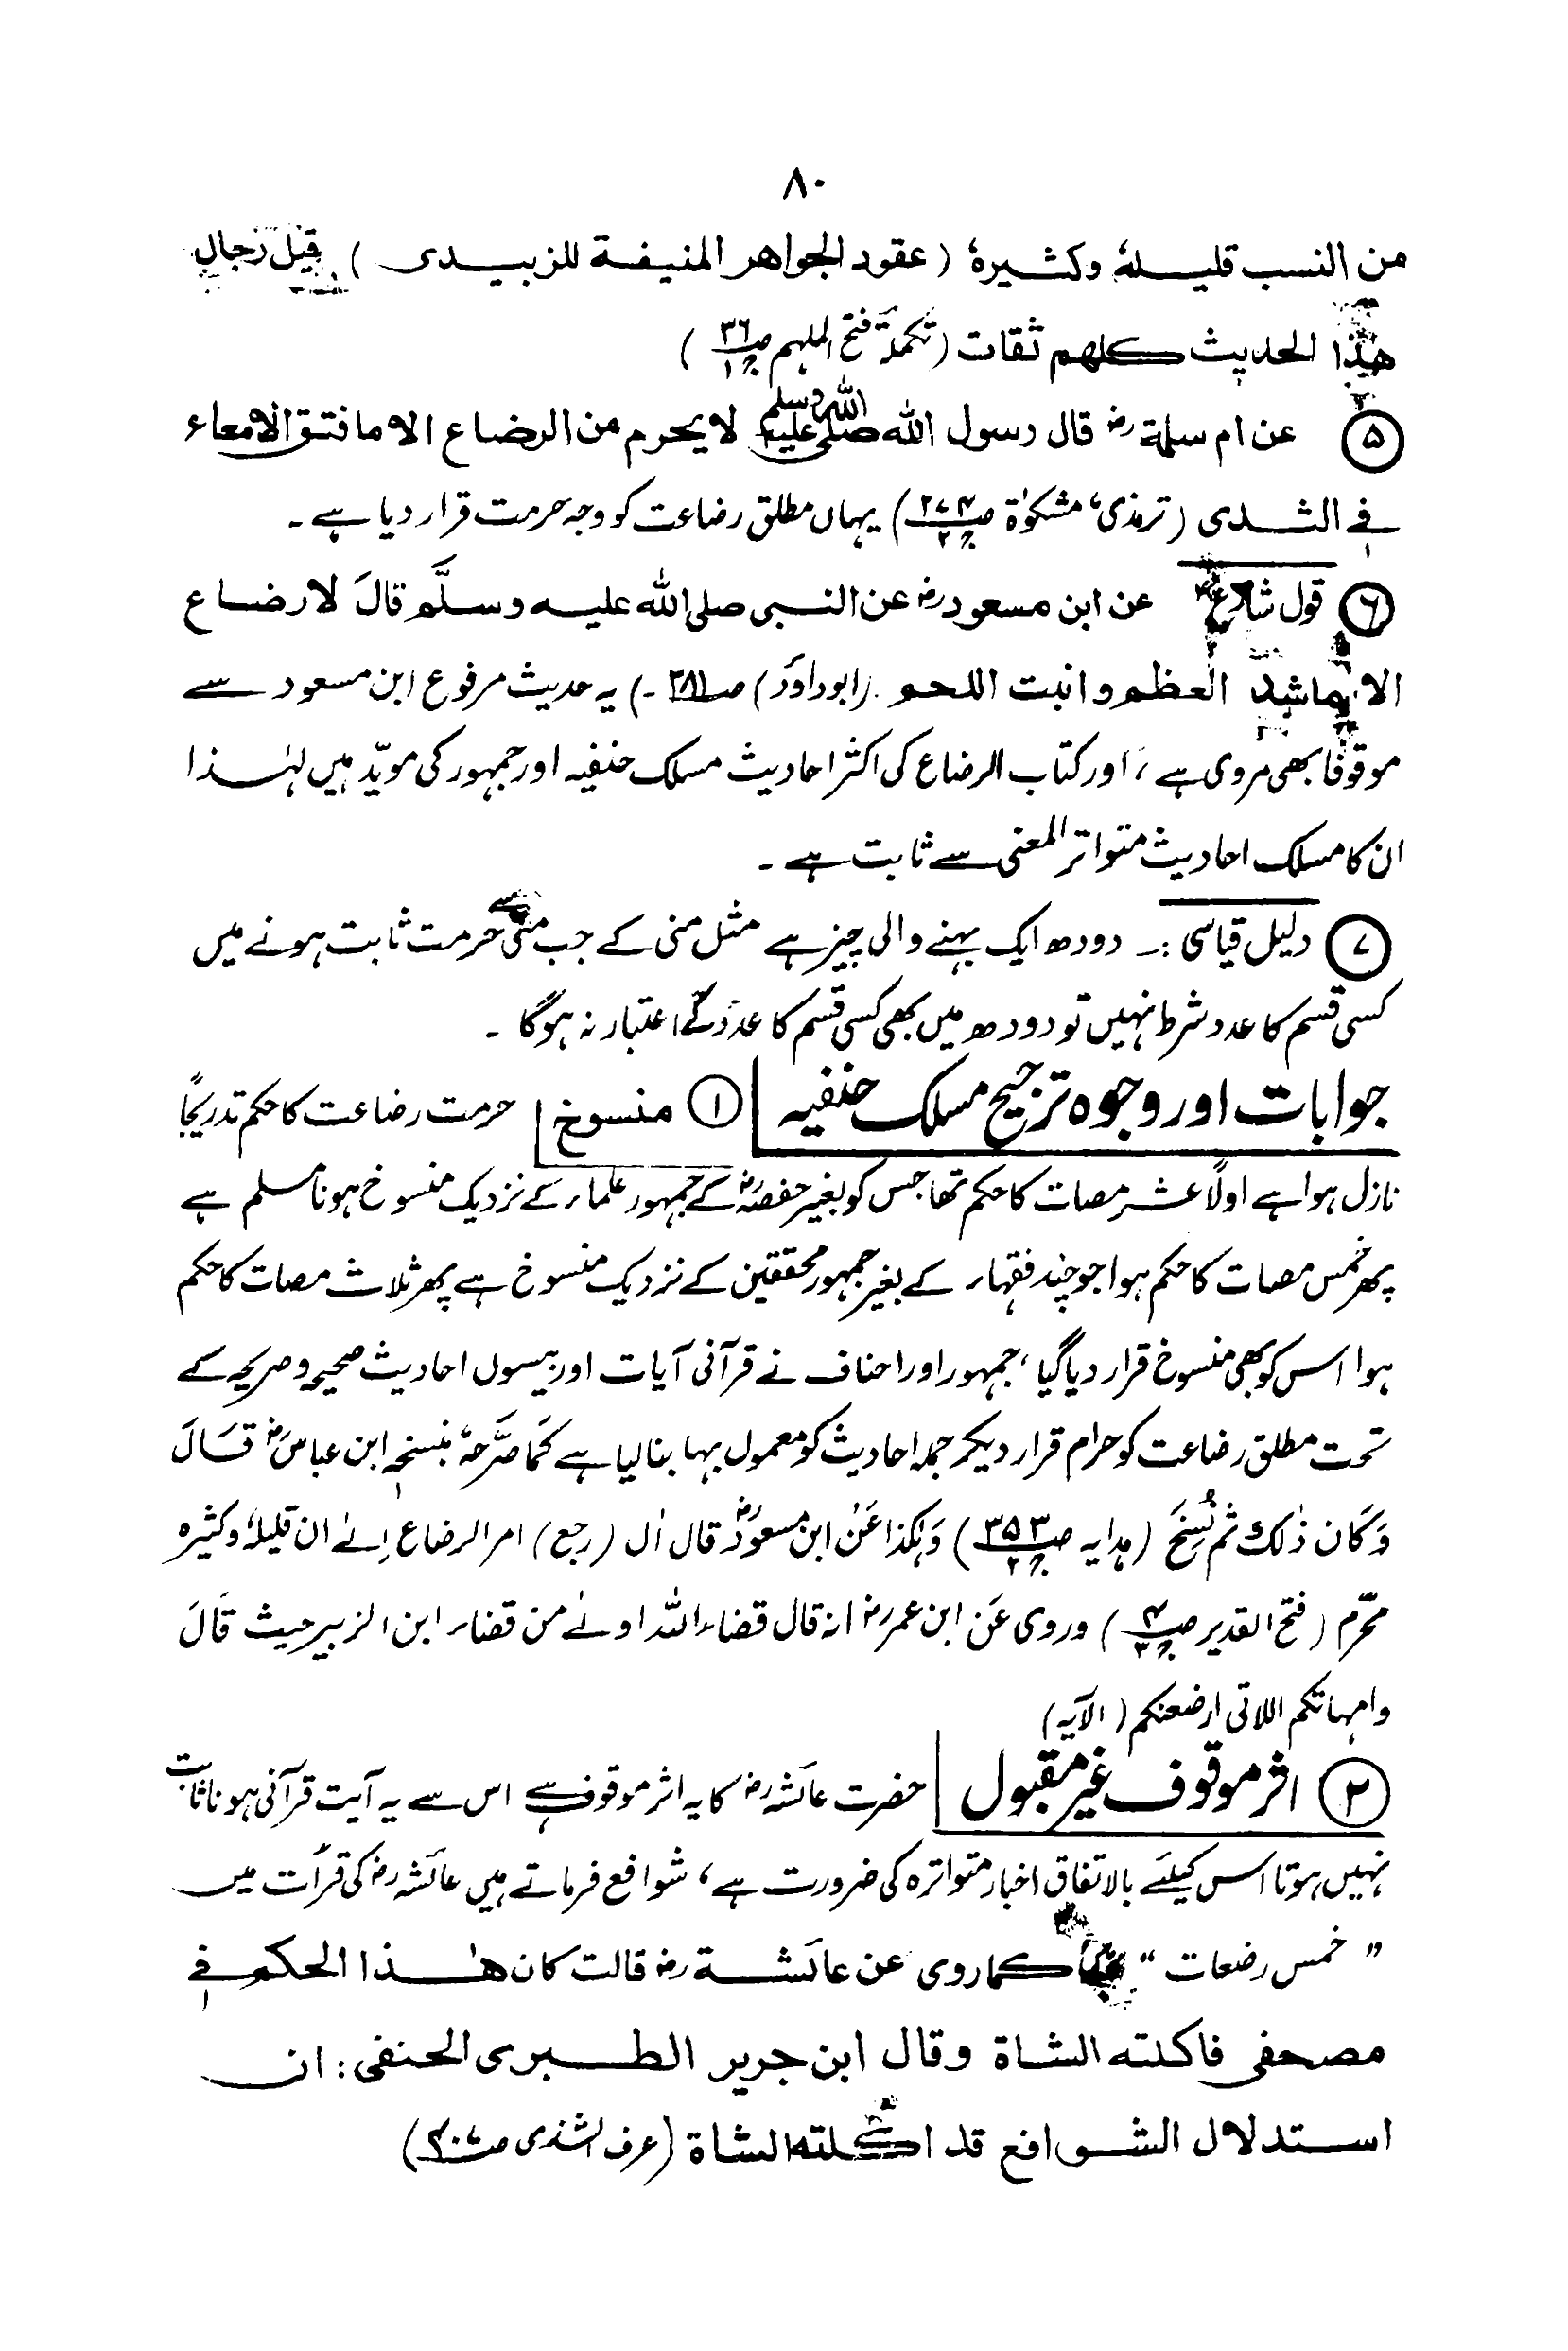 ۸۰
من النسب قلیلہٗ وکثیرہٗ (عقود الجواھر المنیفۃ للزبیدی) قیل رجال
ھٰذا الحدیث کلھم ثقات (تکملۃ فتح الملہم ص۳۶ ج۱)
⑤ عن ام سلمۃ رض قال رسول اللہ صلی اللہ علیہ وسلم لا یحرم من الرضاع الا ما فتق الامعاء
فی الثدی (ترمذی، مشکوٰۃ ص۲۷۴ ج۲) یہاں مطلق رضاعت کو وجہ حرمت قرار دیا ہے ۔
⑥ قول شارع عن ابن مسعود رض عن النبی صلی اللہ علیہ وسلَّم قالَ لا رضاع
الا ما شد العظم وانبت اللحم (ابوداؤد) صـ۲۸۱ـ) یہ حدیث مرفوع ابن مسعود سے
موقوفًا بھی مروی ہے، اور کتاب الرضاع کی اکثر احادیث مسلک حنفیہ اور جمہور کی مویّد ہیں لہٰذا
ان کا مسلک احادیث متواتر المعنی سے ثابت ہے ۔
⑦ دلیل قیاسی :۔ دودھ ایک بہنے والی چیز ہے مثل منی کے جب منی سے حرمت ثابت ہونے میں
کسی قسم کا عدد شرط نہیں تو دودھ میں بھی کسی قسم کا عدد کے اعتبار نہ ہوگا ۔
جوابات اور وجوہ ترجیح مسلک حنفیہ ① منسوخ حرمت رضاعت کا حکم تدریجًا
نازل ہوا ہے اولًا عشر مصات کا حکم تھا جس کو بغیر حفصہ رض کے جمہور علماء کے نزدیک منسوخ ہونا مسلم ہے
پھر خمس مصات کا حکم ہوا جو چند فقہاء کے بغیر جمہور محققین کے نزدیک منسوخ ہے پھر ثلاث مصات کا حکم
ہوا اس کو بھی منسوخ قرار دیا گیا، جمہور اور احناف نے قرآنی آیات اور بیسوں احادیث صحیحہ و صریحہ کے
تحت مطلق رضاعت کو حرام قرار دیکر جملہ احادیث کو معمول بہا بنا لیا ہے کَمَا صَرَّحَہٗ بنسخہٖ ابن عباسؓ قَالَ
وَکَان ذٰلک ثم نُسِخَ (ہدایہ ص۳۵۳ ج۲) وَہٰکذا عَن ابن مسعودؓ قال اٰل (رجع) امر الرضاع اِلیٰ ان قلیلہٗ وکثیرہ
محرّم (فتح القدیر ص۴ ج۳) وروی عَن ابن عمر رض انہ قال قضاء اللہ اولیٰ من قضاء ابن الزبیر حیث قَالَ
وامہاتکم اللاتی ارضعنکم (الآیہ)
② اثر موقوف غیر مقبول حضرت عائشہ رض کا یہ اثر موقوف ہے اس سے یہ آیت قرآنی ہونا ثابت
نہیں ہوتا اس کیلئے بالاتفاق اخبار متواترہ کی ضرورت ہے، شوافع فرماتے ہیں عائشہ رض کی قرأت میں
" خمس رضعات " کما روی عن عائشۃ رض قالت کان ھٰذا الحکم فی
مصحفی فاکلتہ الشاۃ وقال ابن جریر الطبری الحنفی: ان
استدلال الشوافع قد اکلتہ الشاۃ (عرف الشذی صـ۲۰۷)